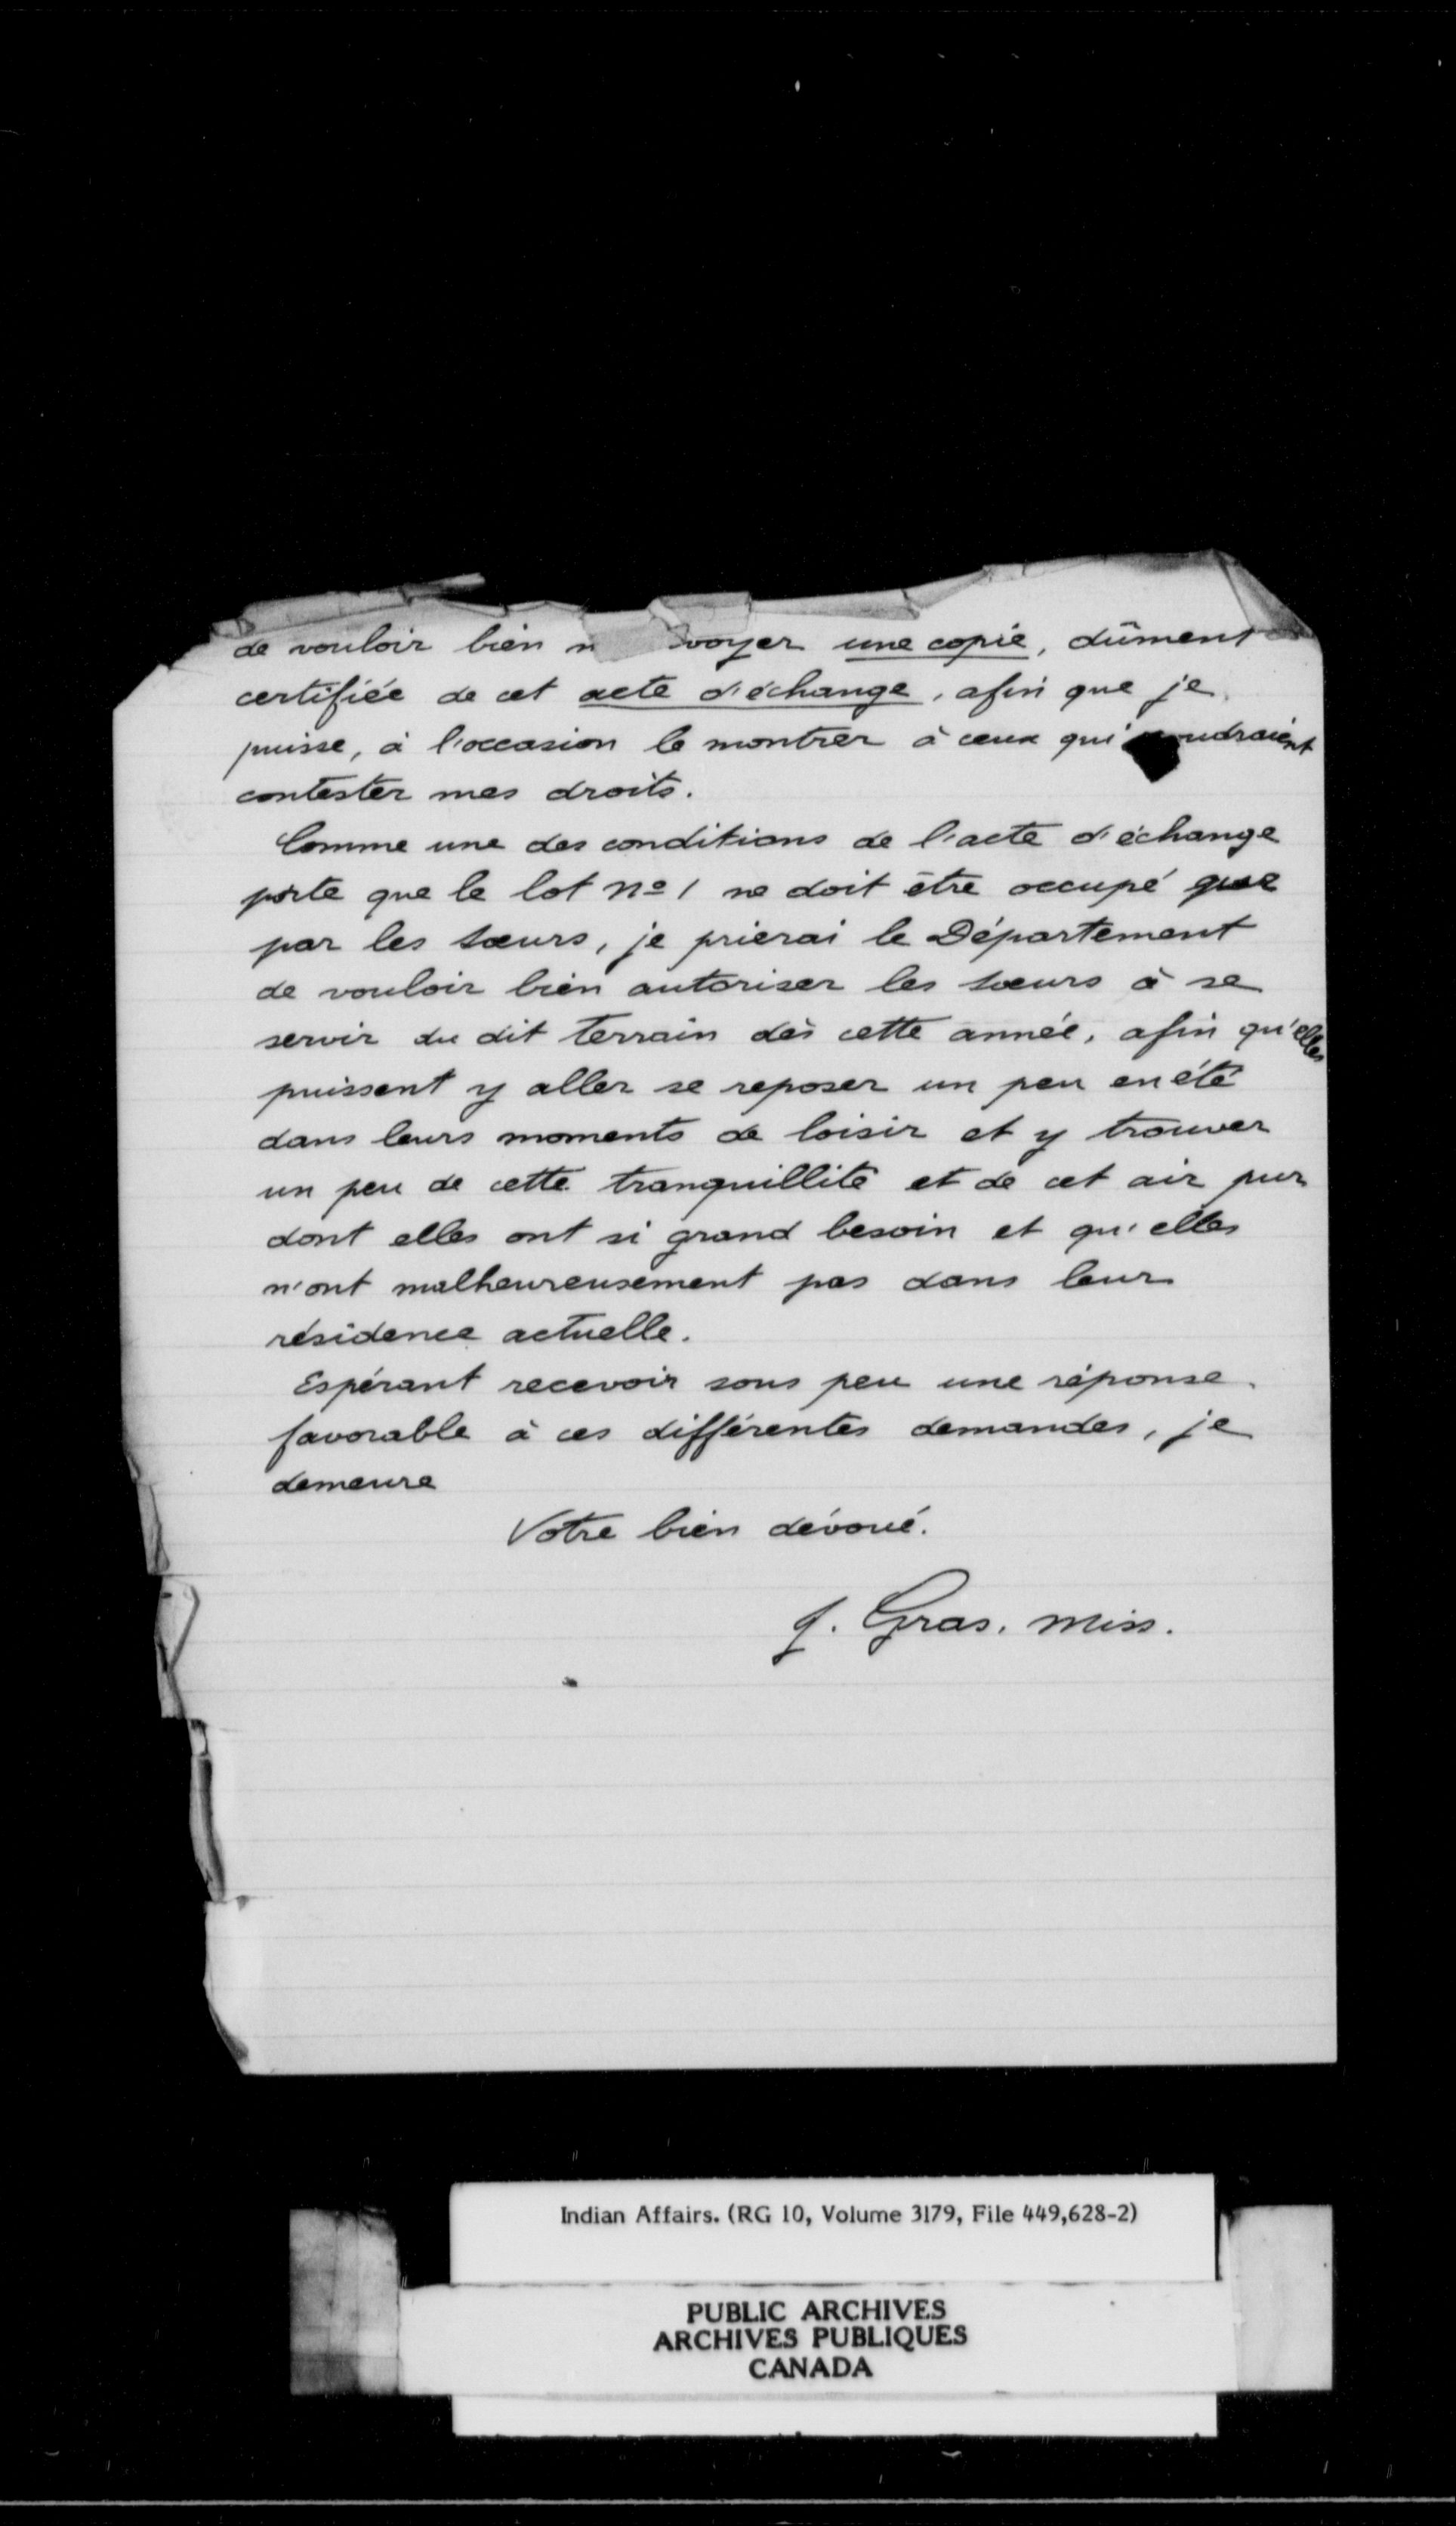 de vouloir bien voyer une copie, dûment
certifiée de cet acte d'échange, afin que je
puisse, à l'occasion le montrer à ceux qui voudraient
contester mes droits.
Comme une des conditions de l'acte d'échange
porte que le lot No 1 ne doit être occupé que
par les sœurs, je prierai le Département
de vouloir bien autoriser les sœurs à se
servir du dit terrain dès cette année, afin qu'elles
puissent y aller se reposer un peu en été
dans leurs moments de loisir et y trouver
un peu de cette tranquillité et de cet air pur
dont elles ont si grand besoin et qu'elles
n'ont malheureusement pas dans leur
résidence actuelle.
Espérant recevoir sous peu une réponse
favorable à ces différentes demandes, je
demeure
Votre bien dévoué.
J. Gras. miss.
Indian Affairs. (RG 10, Volume 3179, File 449,628-2)
PUBLIC ARCHIVES
ARCHIVES PUBLIQUES
CANADA